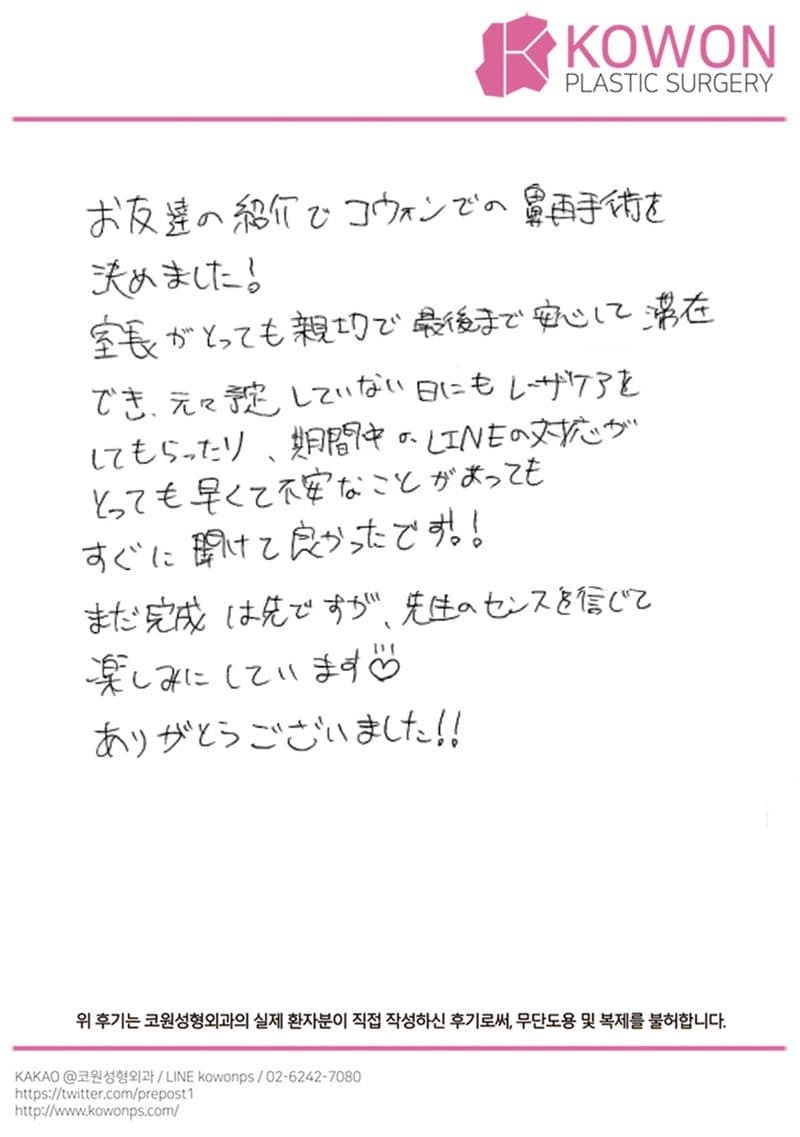 KOWON
PLASTIC SURGERY
お友達の紹介でコウォンでの鼻再手術を
決めました!
室長がとっても親切で最後まで安心して滞在
でき、元々予定していない日にもレーザケアを
してもらったり、期間中のLINEの対応が
とっても早くて不安なことがあっても
すぐに聞けて良かったです!!
まだ完成は先ですが、先生のセンスを信じて
楽しみにしています♡
ありがとうございました!!
위 후기는 코원성형외과의 실제 환자분이 직접 작성하신 후기로써, 무단도용 및 복제를 불허합니다.
KAKAO @코원성형외과 / LINE kowonps / 02-6242-7080
https://twitter.com/prepost1
http://www.kowonps.com/